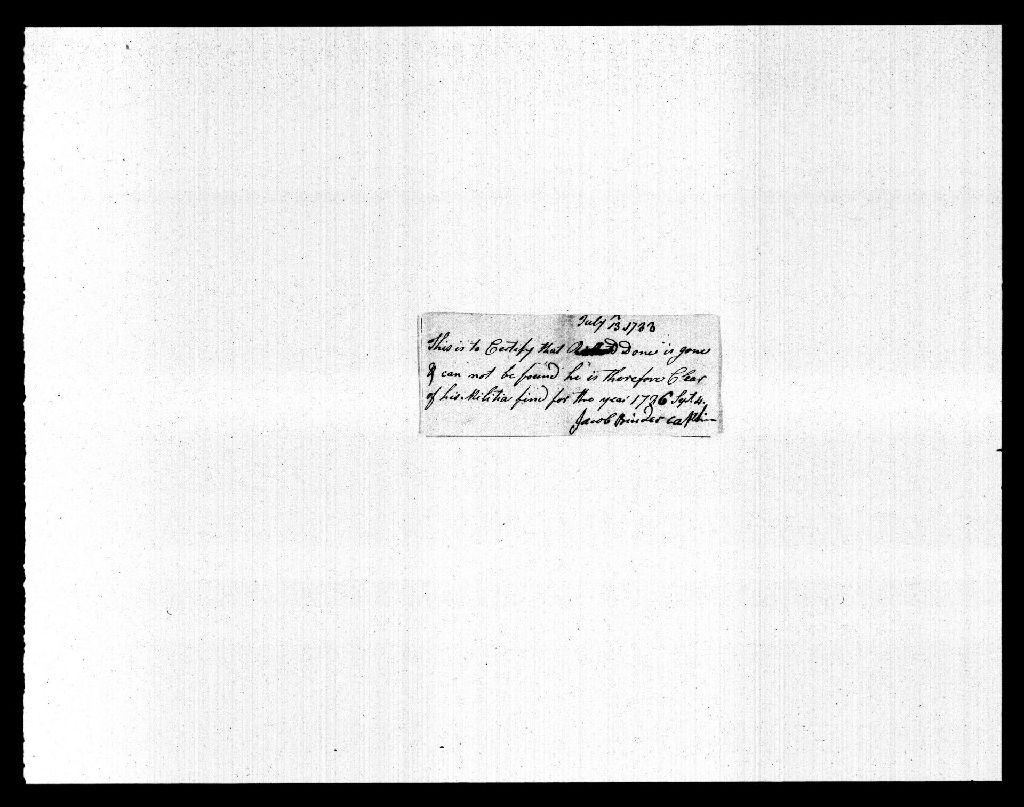 July 13 1788
This is to Certify that Done is gone
& can not be found he is therefore Clear
of his Militia fine for the year 1786 Sept 4.
Jacob Binder